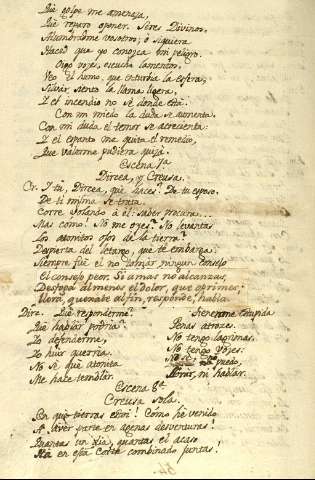 Qué golpe me amenaza,
Qué reparo oponer. Seres Divinos,
Alumbradme vosotros; ó siquiera
Haced que yo conozca mi peligro.
Oigo vozes, escucho lamentos:
Veo el humo, que enturbia la esfera,
Silvar siento la llama ligera,
Y el incendio no sé donde está.
Con mi miedo la duda se aumenta
Con mi duda el temor se acrecienta:
Y el espanto me quita el remedio,
Que valerme pudiera quizá.
Escena 7ª
Dircea, y Creusa.
Cr. Y tú, Dircea, qué haces? De tu esposo,
De ti misma se trata.
Corre volando á él: saber procura...
Mas como! No me oyes? No levantas
Los atonitos ojos de la tierra?
Despierta del letargo, que te embarga.
Siempre fué el no tomar ningun consejo
El consejo peor. Si amas no alcanzas,
Desfoga al menos el dolor, que oprimes:
Llora, quexate al fin, responde, habla.
Dirc. Qué responderme?
Qué hablar podria?
Lo defenderme,
Lo huir querria.
No sé qué atonita
Me hace temblar.
Tienenme estupida
Penas atrozes.
No tengo lagrimas,
No tengo vozes:
No puedo,
Llorar, ni hablar.
Escena 8ª
Creusa sola.
En qué tierras estoi! Cómo he venido
A tener parte en agenas desventuras!
Quantas un dia, quantas el acaso
Ha en esta Corte combinado juntas!